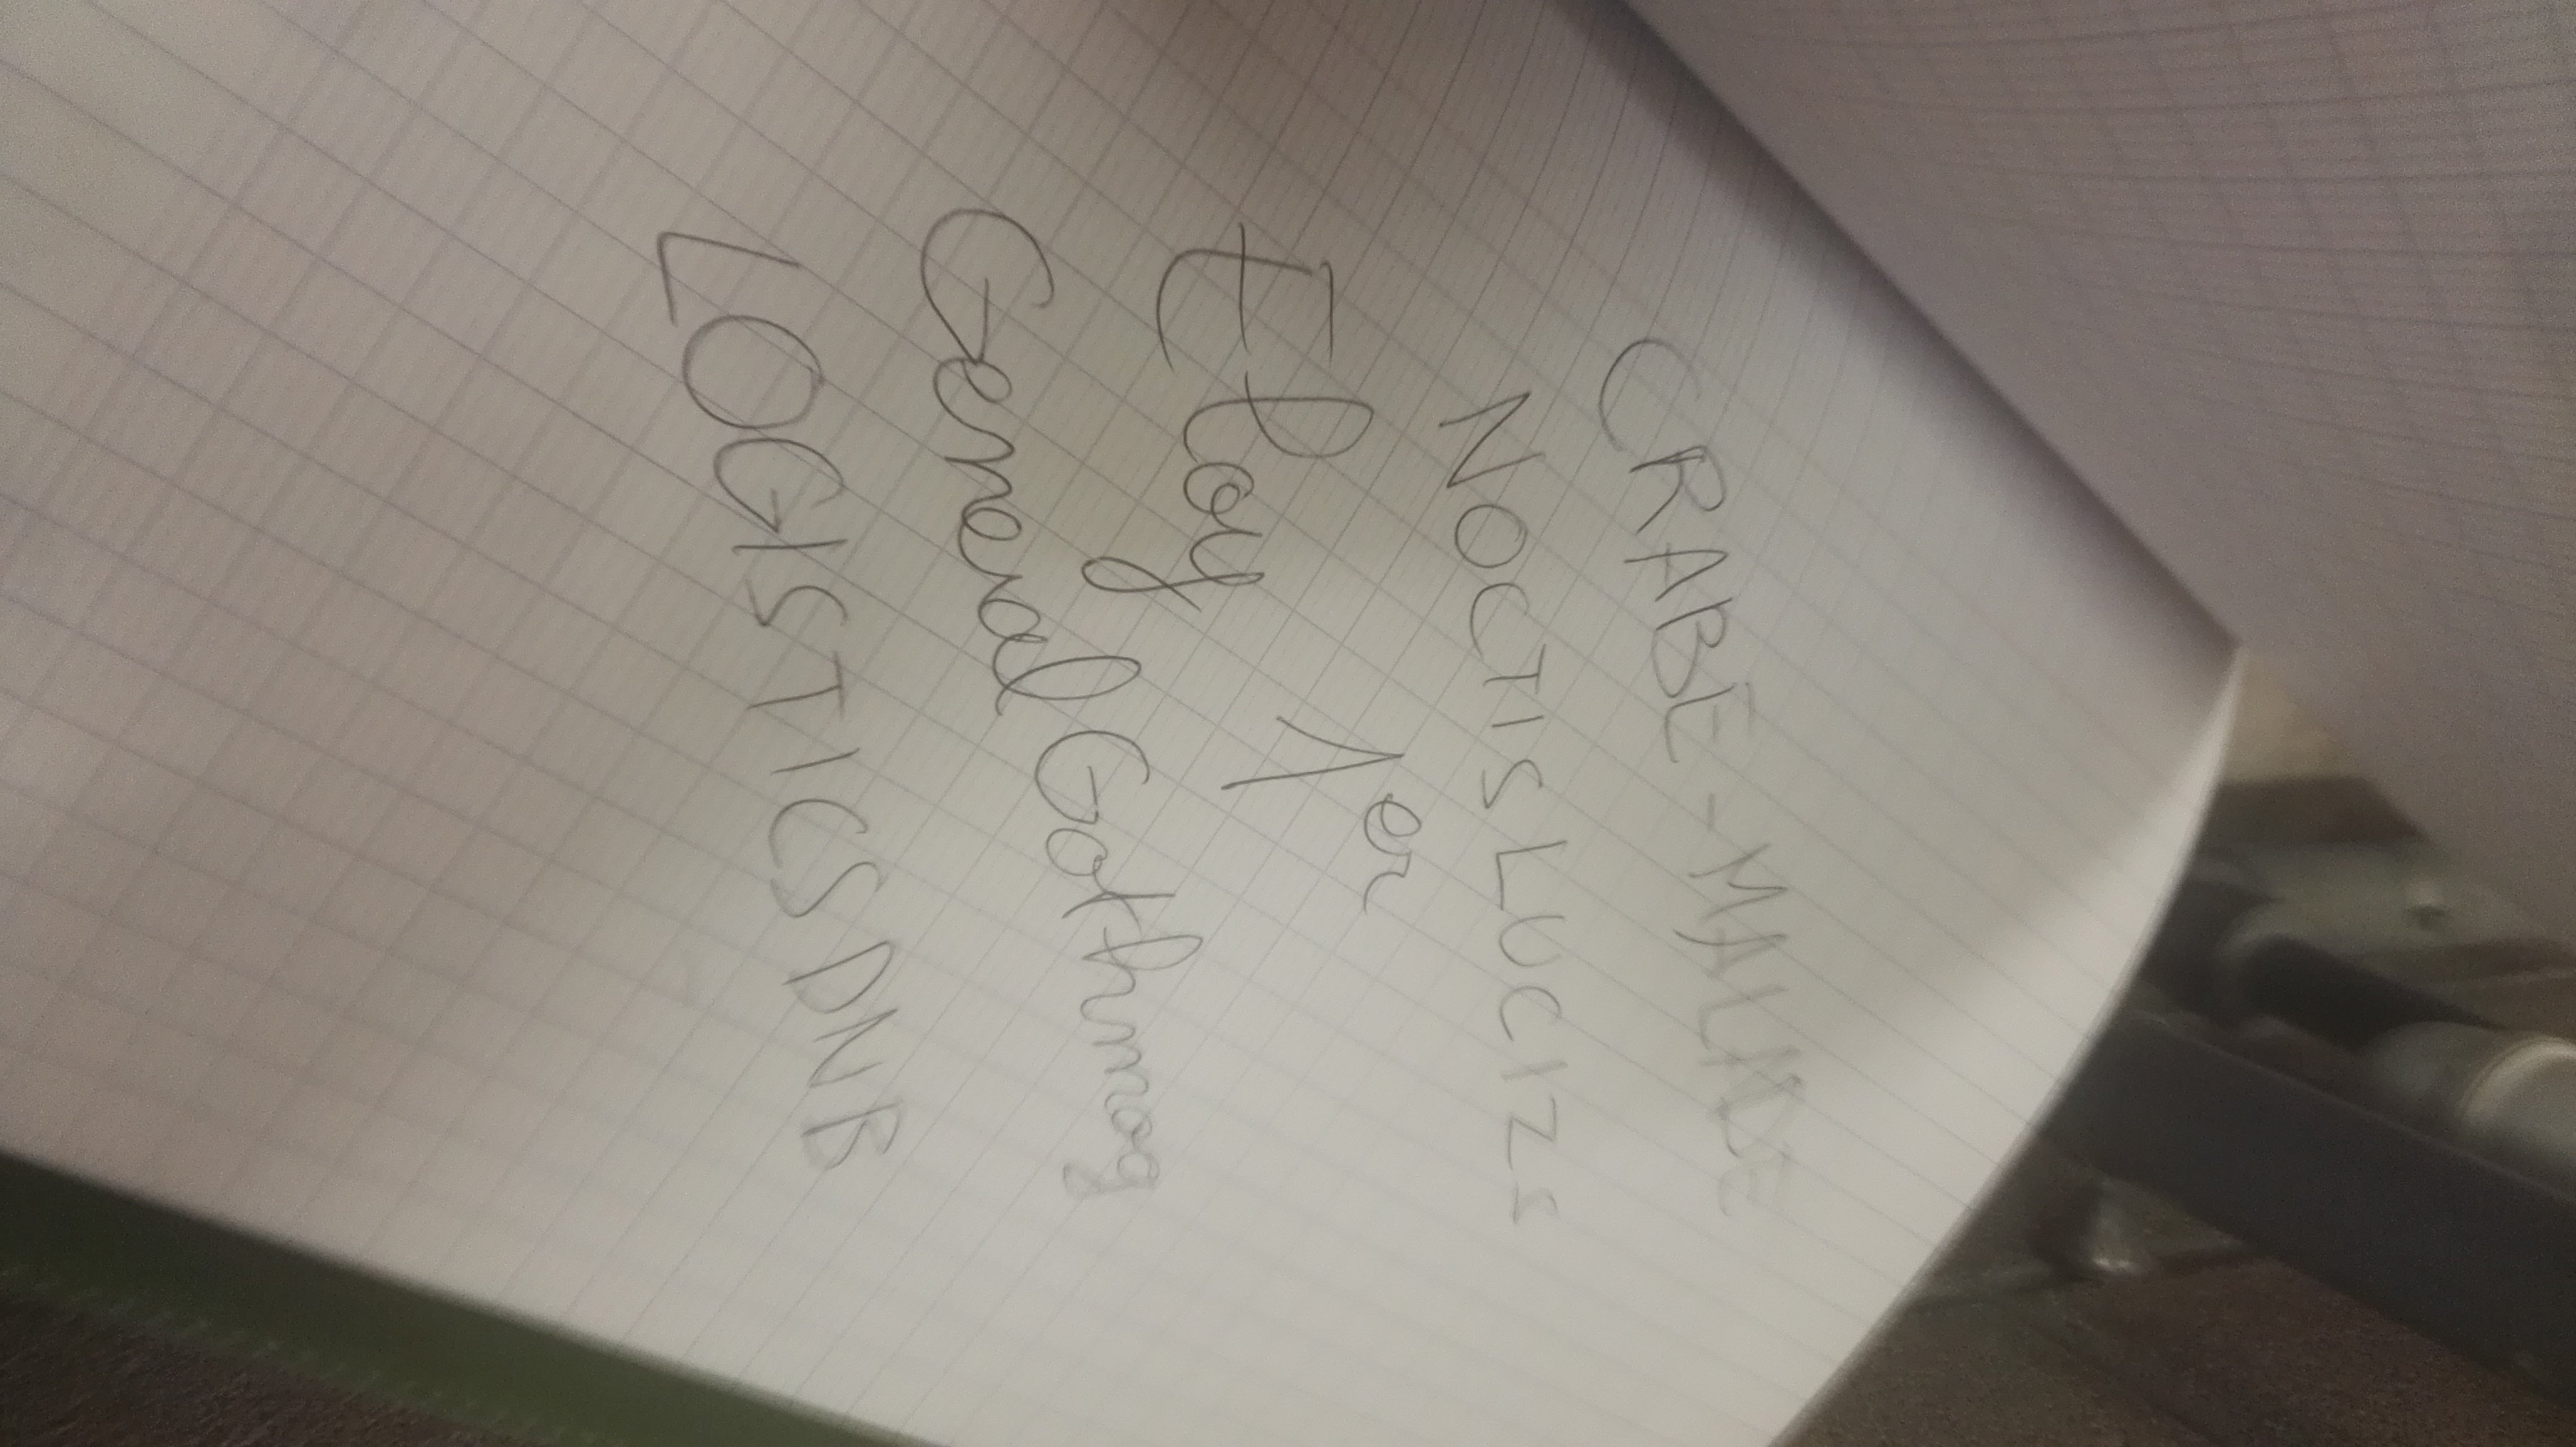 CRABE-MALICE
NOCTIS LUCIZS
Eloy 1er
General Gothmog
LOGISTICS DNB